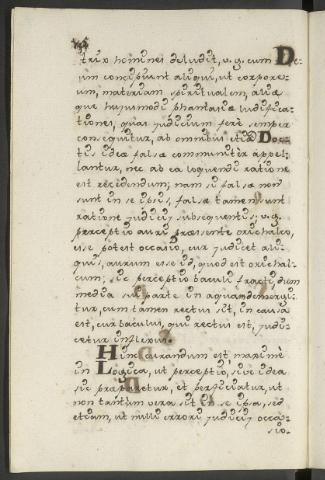 trix homines deludit, v. g. cum De-
um concipiunt aliqui, ut corpore-
um, materiam spiritualem, aliæ
que hujusmodi phantasiæ ludifica-
tiones, quas judicium ferè semper
consequitur, ab omnibus etiã Doc-
tis ideæ falsæ communiter appel-
lantur, nec ab ea loquendi ratione
est recidendum; nam si falsæ non
sunt in se ipsis, falsæ tamen sunt
ratione judicij subsequentis; v. g.
perceptio auri præsente orichalco,
esse potest occasio, cur judicet ali-
quis, aurum esse id, quod est orichal-
cum; sic perceptio baculi fracti, dum
media sui parte in aquam demergi-
tur, cum tamen rectus sit, in causa
est, cur baculus, qui rectus est, judi-
cetur inflexus.
Hinc curandum est maximè
in Logica, ut perceptio, sive idea
sic præparetur, et perficiatur, ut
non tantum vera sit in se ipsa, sed
etiam, ut nulli errori judicij occa-
sio.